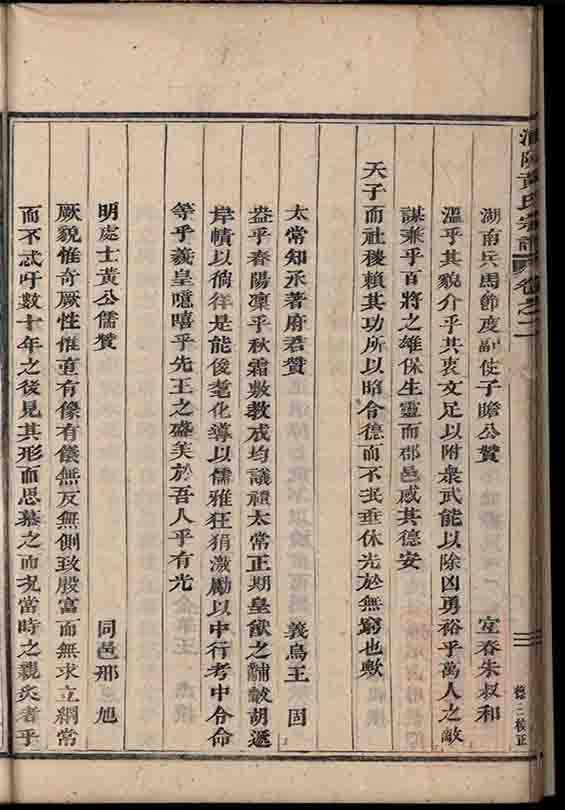 黃氏宗譜 卷之二
德三校正
湖南兵馬節度副使子瞻公贊 宜春朱叔和
溫乎其貌介乎其衷文足以附衆武能以除凶勇裕乎萬人之敵
謀兼乎百將之雄保生靈而郡邑感其德安
天子而社稷賴其功所以昭令德而不泯垂休光於無窮也歟
太常知丞著府君贊 義烏王固
盎乎春陽凜乎秋霜敷教戒均議禮太常正期皇猷之黼黻胡遽
岸幘以徜徉是能俊髦化導以儒雅狂狷激勵以中行考中令命
等乎羲皇噫嘻乎先王之盛美於吾人乎有光
明處士黃公儒贊 同邑邢旭
厥貌惟奇厥性惟直有像有儀無反無側致殷富而無求立綱常
而不忒吁數十年之後見其形而思慕之而况當時之親炙者乎